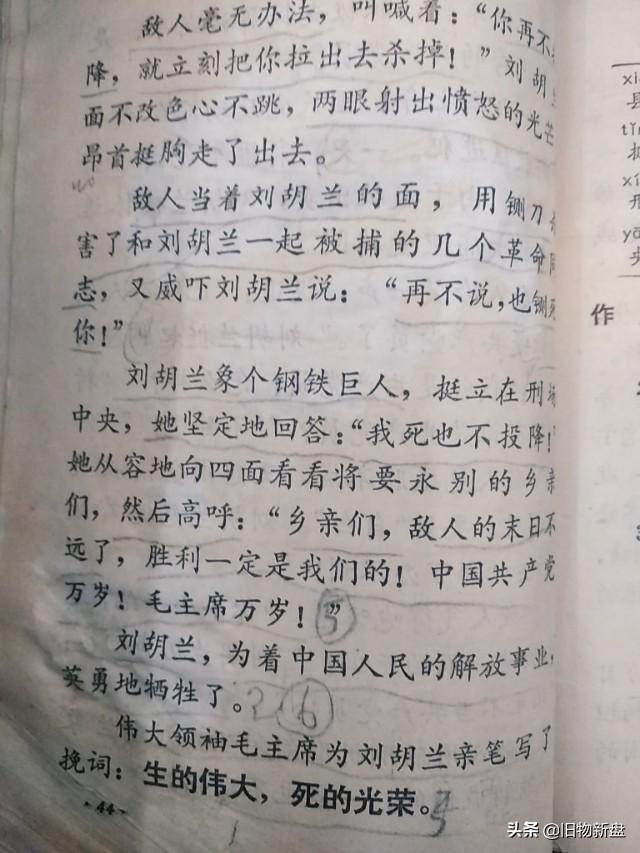 敌人毫无办法，叫喊着：“你再不
降，就立刻把你拉出去杀掉！”刘胡
面不改色心不跳，两眼射出愤怒的光芒
昂首挺胸走了出去。
敌人当着刘胡兰的面，用铡刀
害了和刘胡兰一起被捕的几个革命同
志，又威吓刘胡兰说：“再不说，也铡死
你！”
刘胡兰象个钢铁巨人，挺立在刑场
中央，她坚定地回答：“我死也不投降！”
她从容地向四面看看将要永别的乡亲
们，然后高呼：“乡亲们，敌人的末日不
远了，胜利一定是我们的！中国共产党
万岁！毛主席万岁！”
刘胡兰，为着中国人民的解放事业，
英勇地牺牲了。
6
伟大领袖毛主席为刘胡兰亲笔写了
挽词：生的伟大，死的光荣。
·44·
xi
县
tǐn
xí
yā
央
作
头条 @旧物新盘